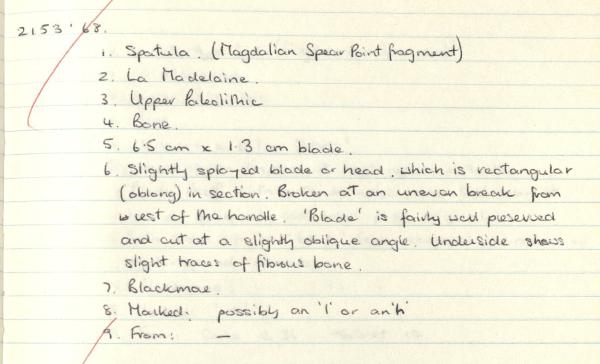 2153'68.
1. Spatula. (Magdalian Spear Point fragment)
2. La Madelaine.
3. Upper Paleolithic
4. Bone.
5. 6.5 cm x 1.3 cm blade.
6. Slightly splayed blade or head, which is rectangular
(oblong) in section. Broken at an uneven break from
rest of the handle. 'Blade' is fairly well preserved
and cut at a slightly oblique angle. Underside shows
slight traces of fibrous bone.
7. Blackmore.
8. Marked: possibly an 'l' or an 'h'
9. From: —